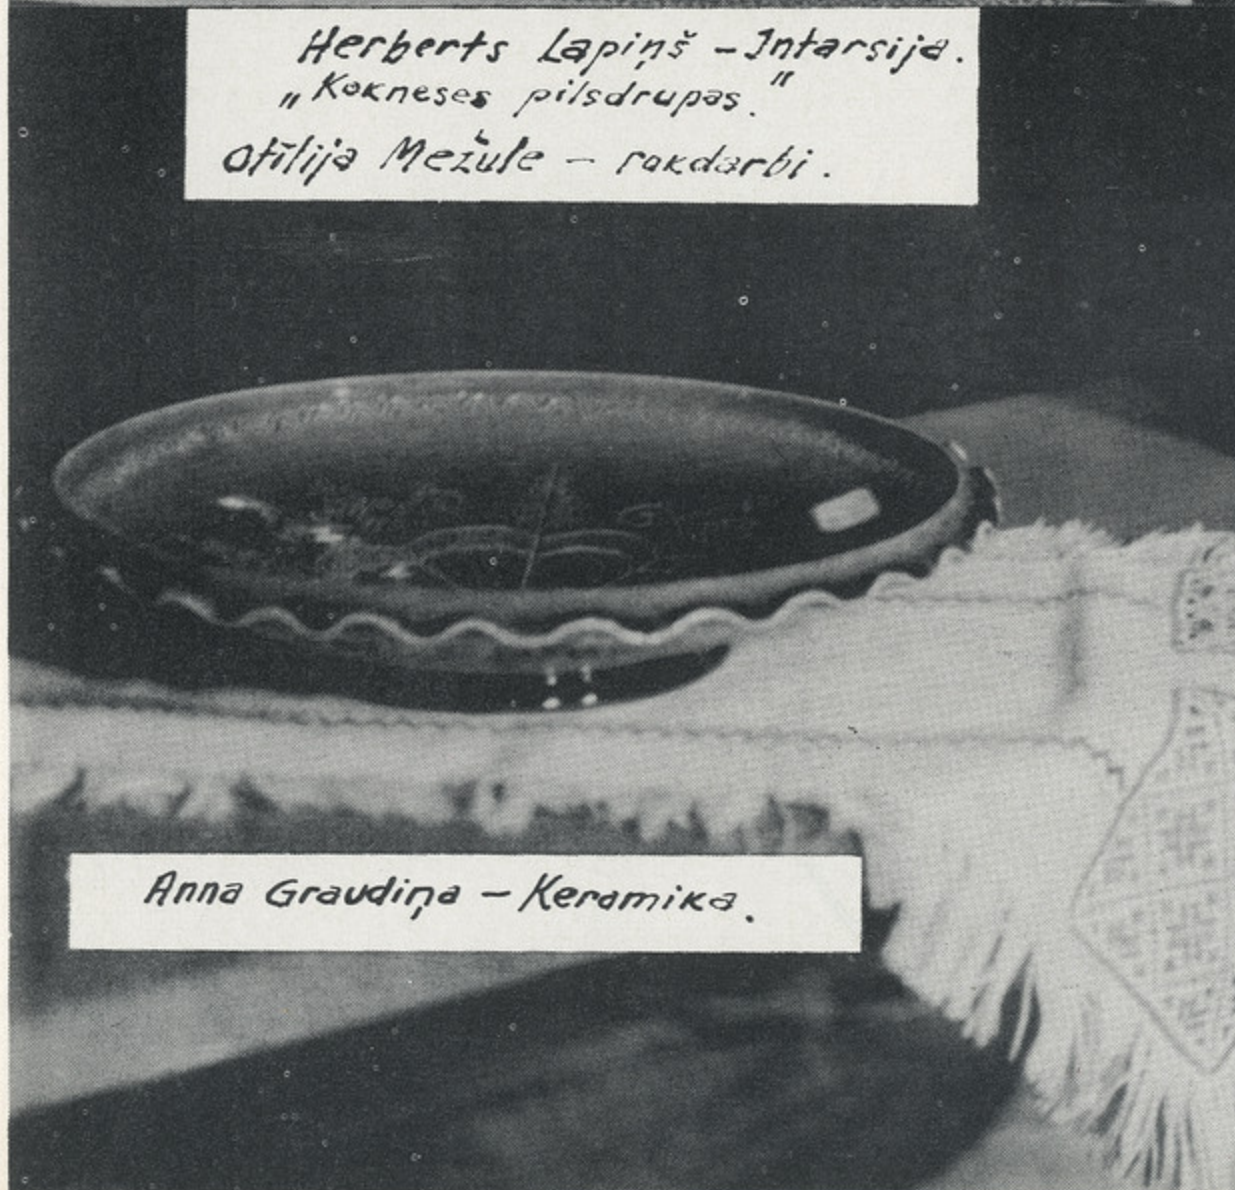 Herberts Lapiņš – Intarsija.
„Kokneses pilsdrupas."
Otīlija Mežule – rokdarbi.
Anna Graudiņa – Keramika.